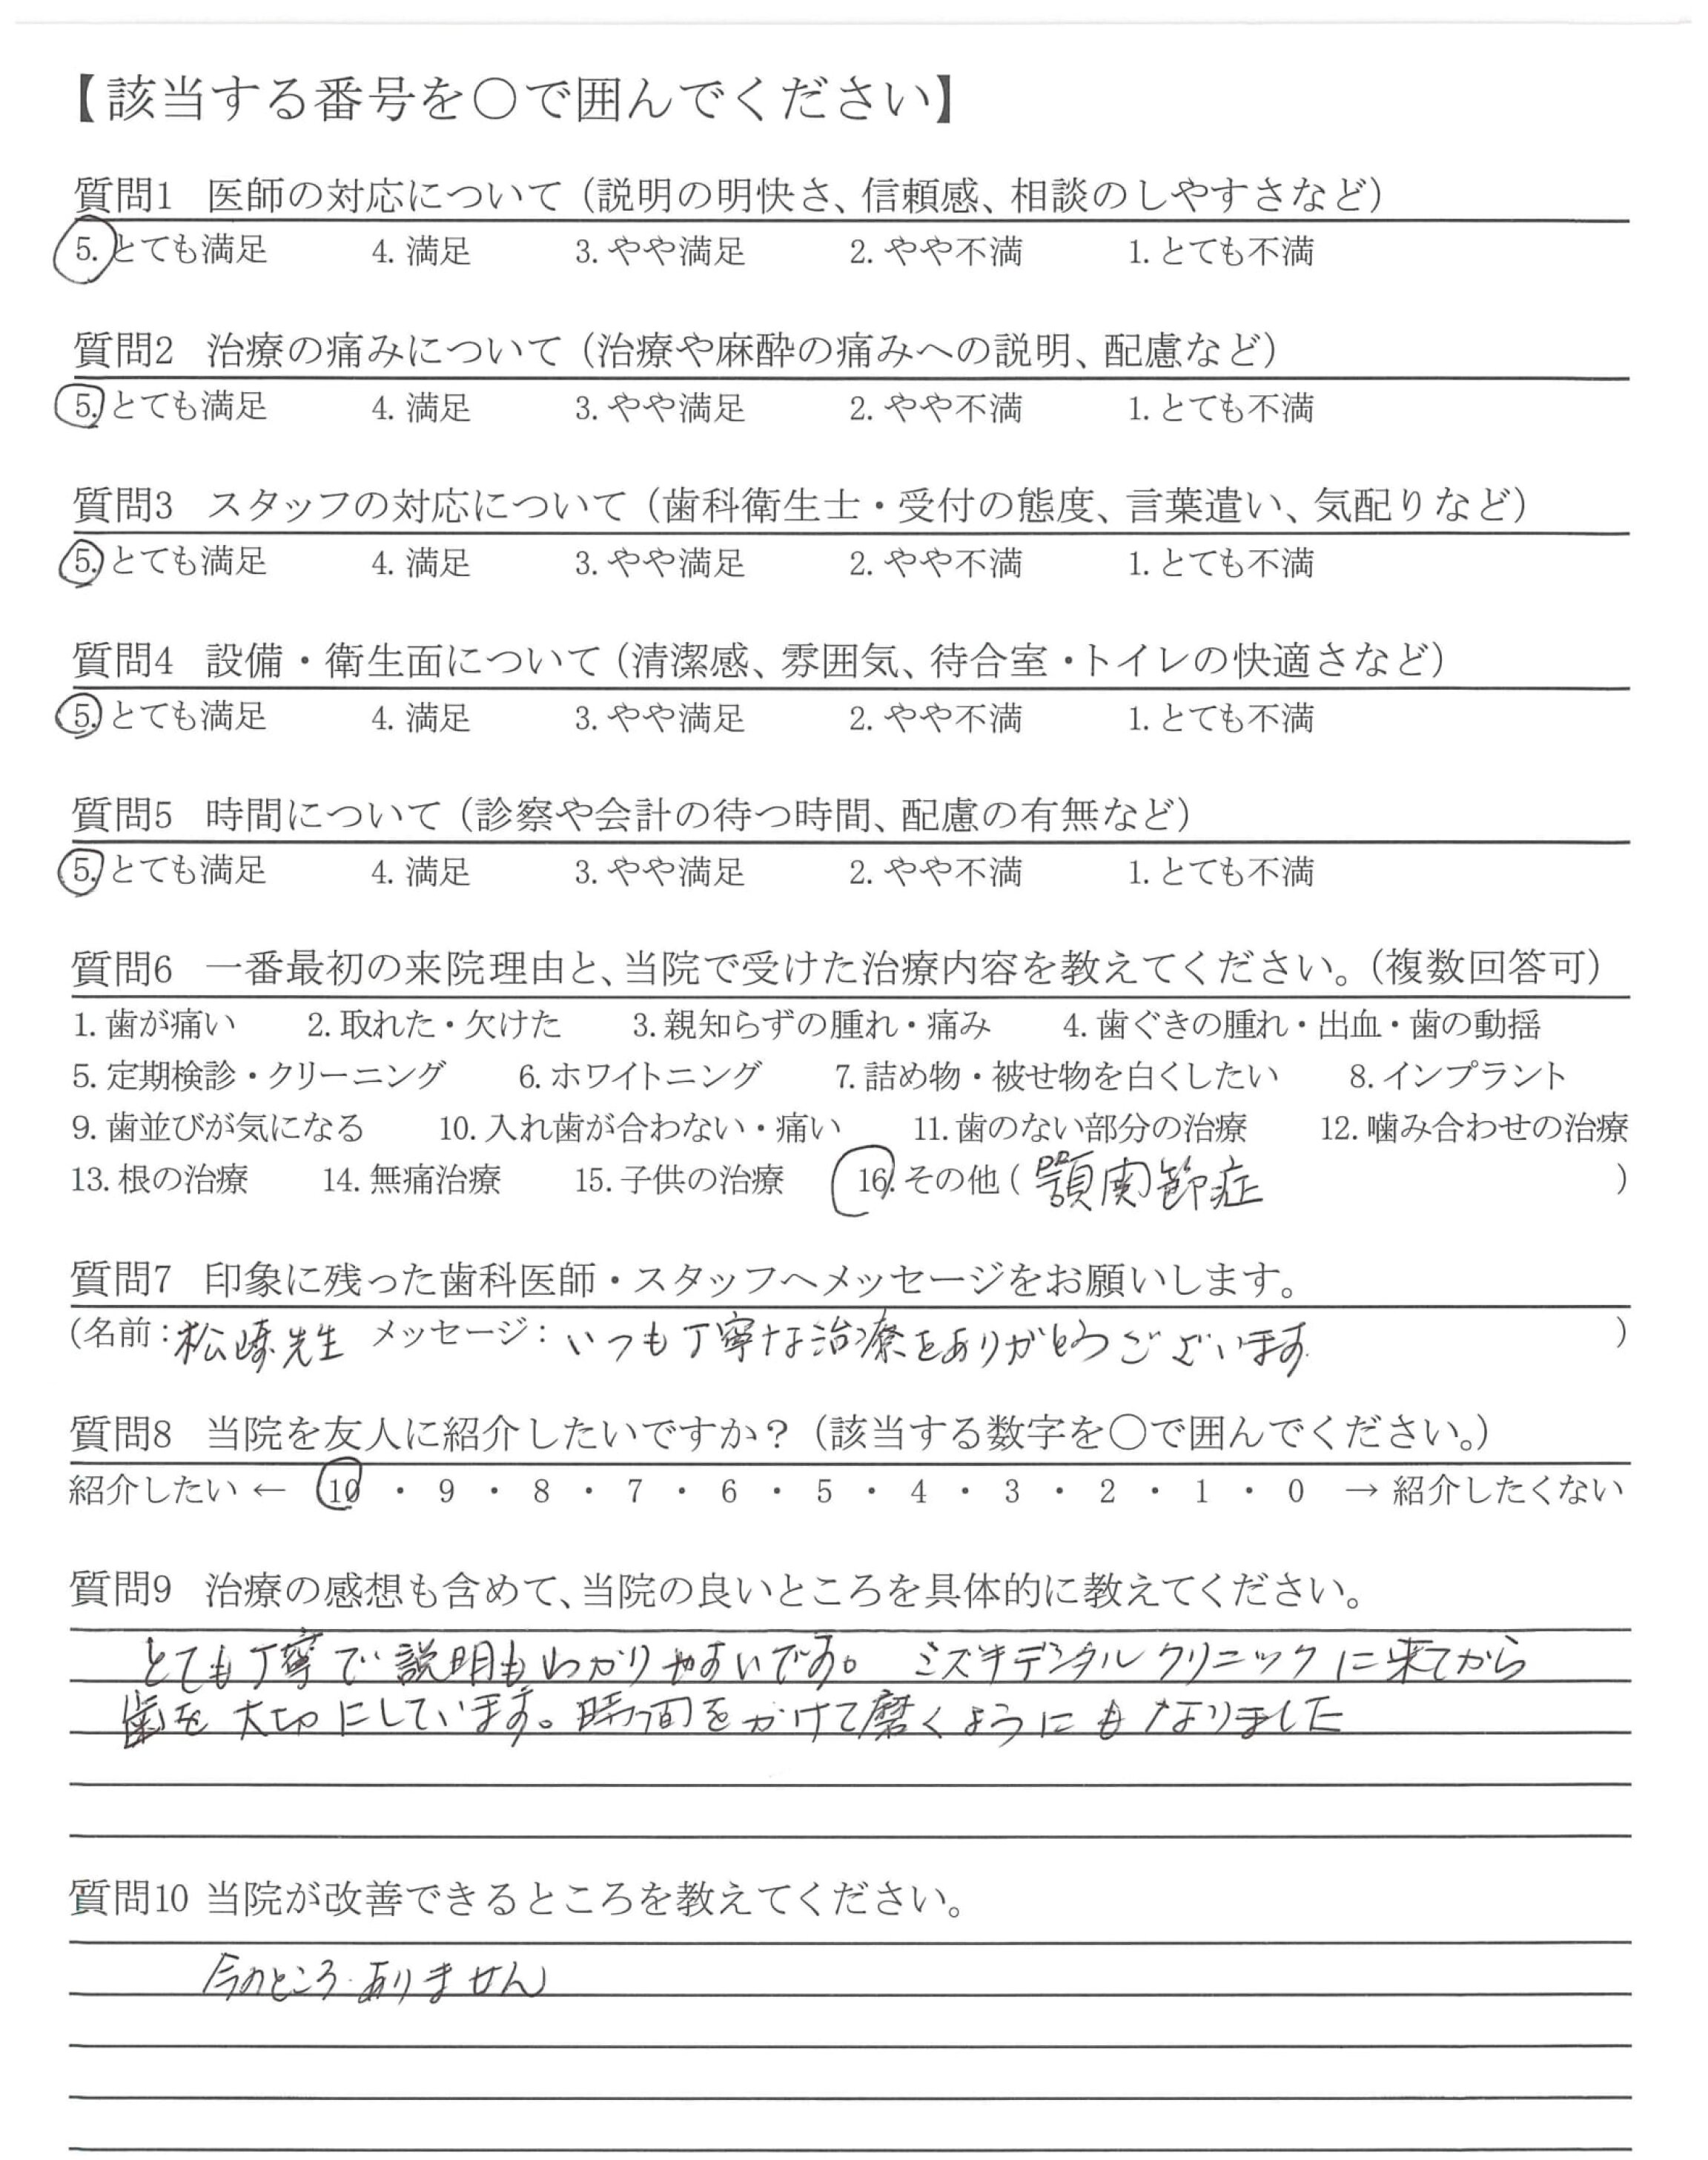 【該当する番号を○で囲んでください】
質問1 医師の対応について（説明の明快さ、信頼感、相談のしやすさなど）
5. とても満足 4. 満足 3. やや満足 2. やや不満 1. とても不満
質問2 治療の痛みについて（治療や麻酔の痛みへの説明、配慮など）
5. とても満足 4. 満足 3. やや満足 2. やや不満 1. とても不満
質問3 スタッフの対応について（歯科衛生士・受付の態度、言葉遣い、気配りなど）
5. とても満足 4. 満足 3. やや満足 2. やや不満 1. とても不満
質問4 設備・衛生面について（清潔感、雰囲気、待合室・トイレの快適さなど）
5. とても満足 4. 満足 3. やや満足 2. やや不満 1. とても不満
質問5 時間について（診察や会計の待つ時間、配慮の有無など）
5. とても満足 4. 満足 3. やや満足 2. やや不満 1. とても不満
質問6 一番最初の来院理由と、当院で受けた治療内容を教えてください。（複数回答可）
1. 歯が痛い 2. 取れた・欠けた 3. 親知らずの腫れ・痛み 4. 歯ぐきの腫れ・出血・歯の動揺
5. 定期検診・クリーニング 6. ホワイトニング 7. 詰め物・被せ物を白くしたい 8. インプラント
9. 歯並びが気になる 10. 入れ歯が合わない・痛い 11. 歯のない部分の治療 12. 噛み合わせの治療
13. 根の治療 14. 無痛治療 15. 子供の治療 16. その他（顎関節症）
質問7 印象に残った歯科医師・スタッフへメッセージをお願いします。
（名前：松崎先生 メッセージ：いつも丁寧な治療をありがとうございます）
質問8 当院を友人に紹介したいですか？（該当する数字を○で囲んでください。）
紹介したい ← 10 ・ 9 ・ 8 ・ 7 ・ 6 ・ 5 ・ 4 ・ 3 ・ 2 ・ 1 ・ 0 → 紹介したくない
質問9 治療の感想も含めて、当院の良いところを具体的に教えてください。
とても丁寧で説明もわかりやすいです。 ミズキデンタルクリニックに来てから
歯を大切にしています。時間をかけて磨くようにもなりました
質問10 当院が改善できるところを教えてください。
今のところありません